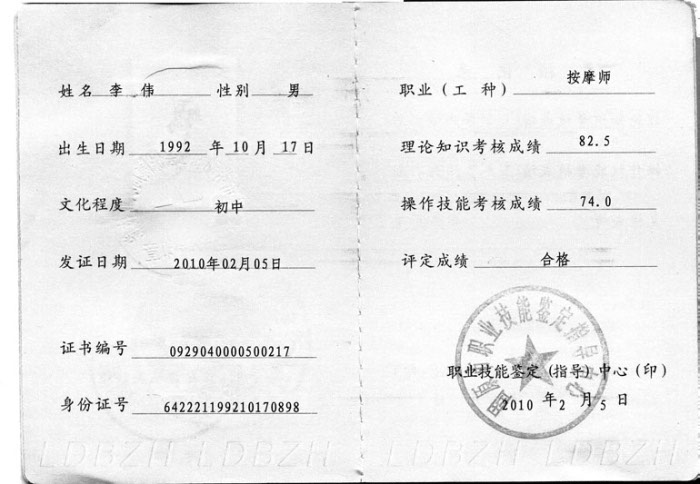 姓名 李 伟 性别 男
出生日期 1992 年 10 月 17 日
文化程度 初中
发证日期 2010年02月05日
证书编号 0929040000500217
身份证号 642221199210170898
职业（工 种） 按摩师
理论知识考核成绩 82.5
操作技能考核成绩 74.0
评定成绩 合格
职业技能鉴定指导中心
职业技能鉴定（指导）中心（印）
2010 年 2 月 5 日
LDBZH LDBZH LDBZH LDBZH